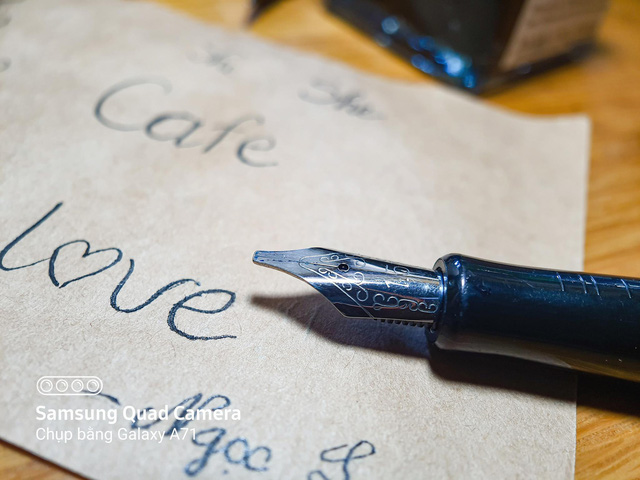 Cafe
love
Samsung Quad Camera
Chụp bằng Galaxy A71
Ngọc